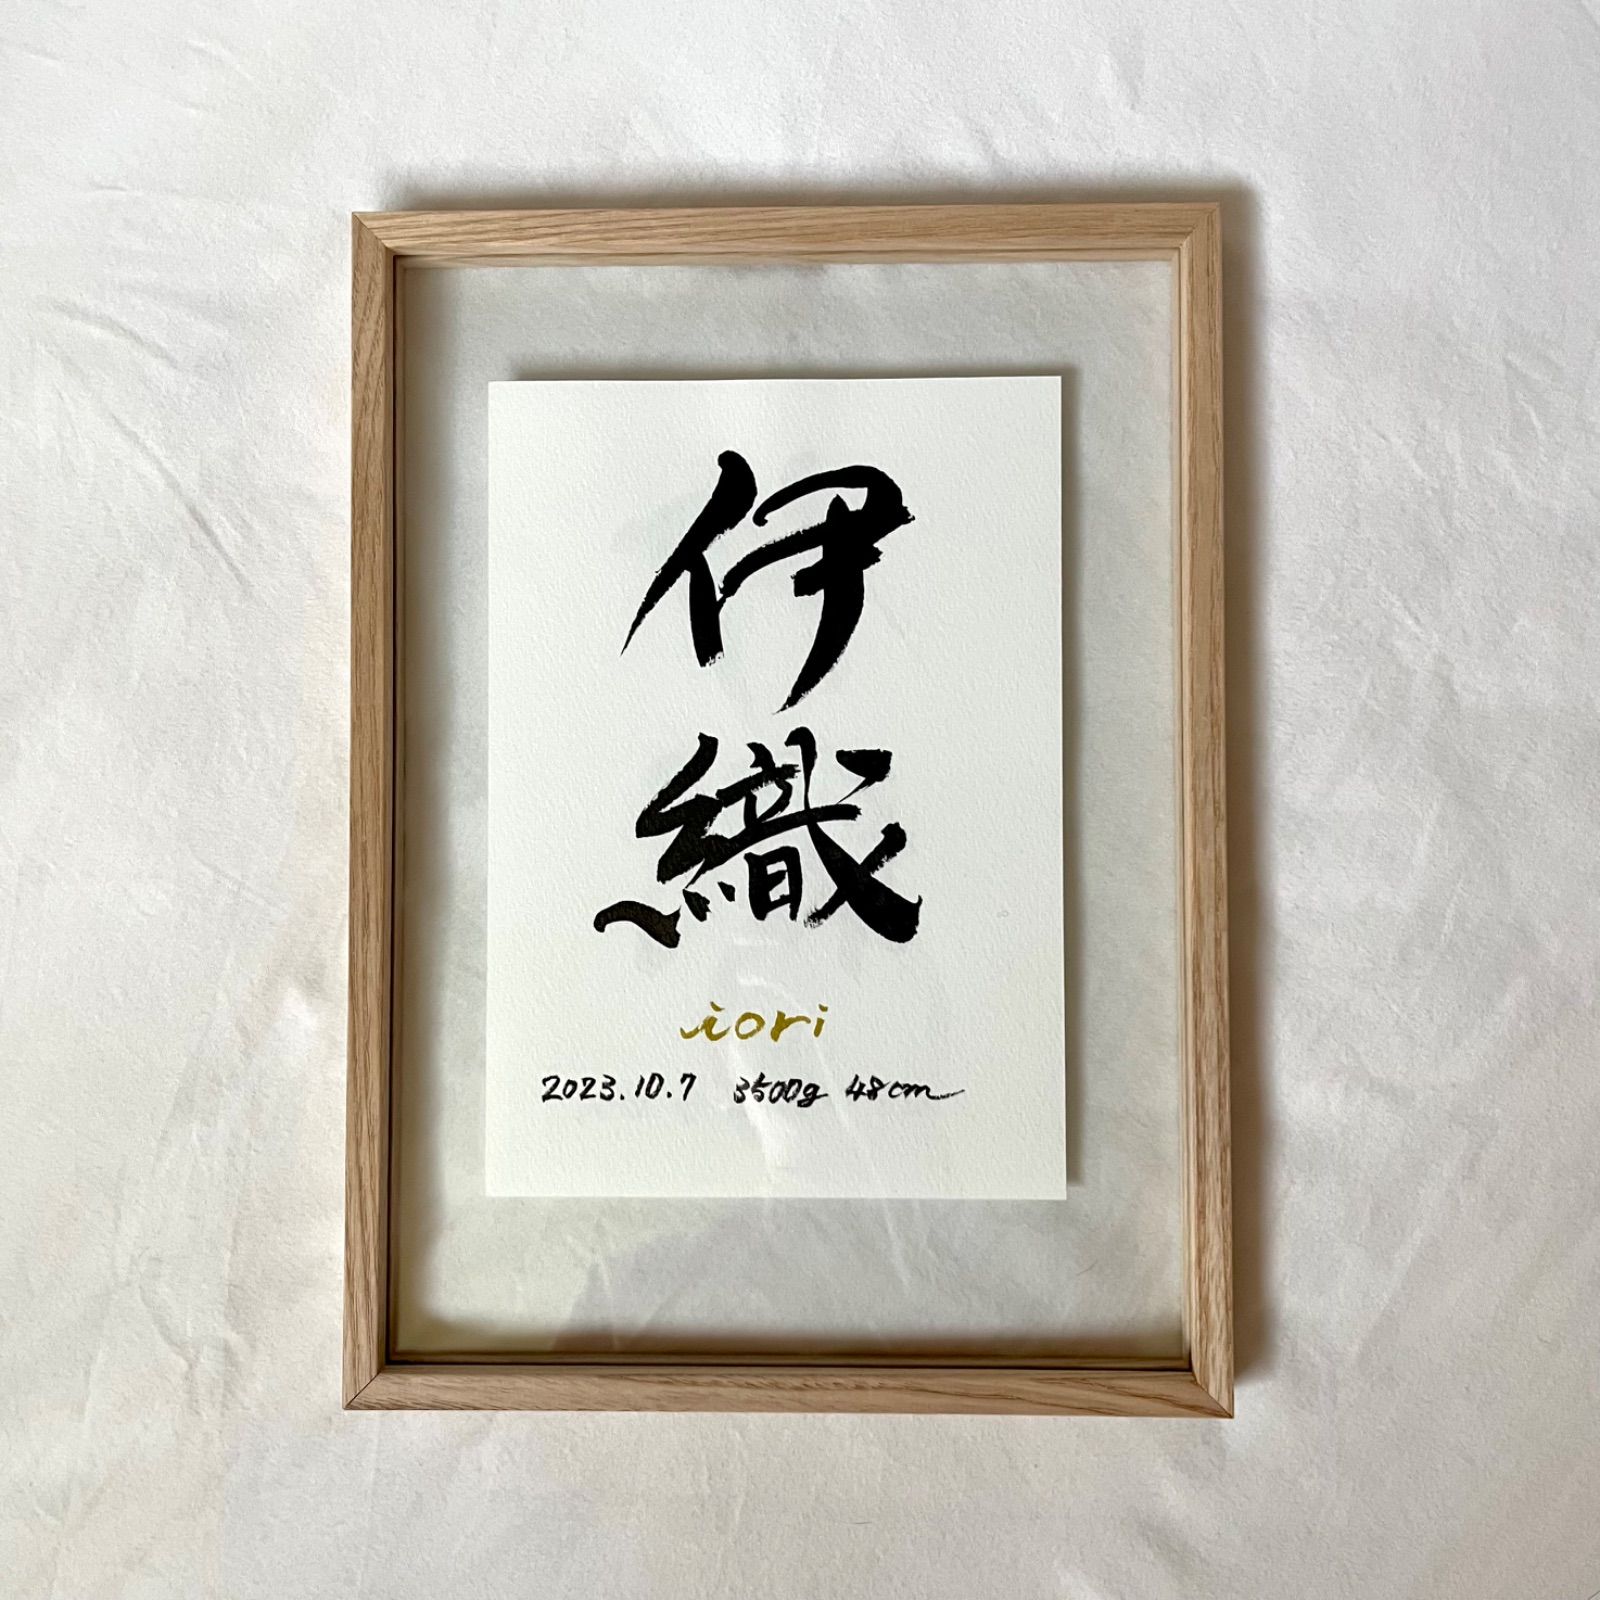 伊織
iori
2023.10.7 3500g 48cm